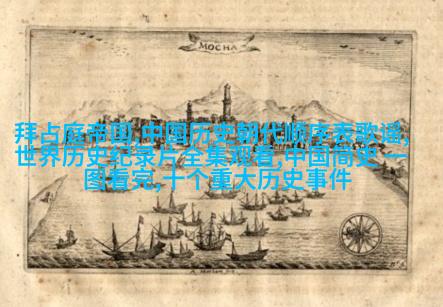 MOCHA
拜占庭帝国,中国历史朝代顺序表歌谣,
世界历史纪录片全集观看,中国简史 一
图看完,十个重大历史事件